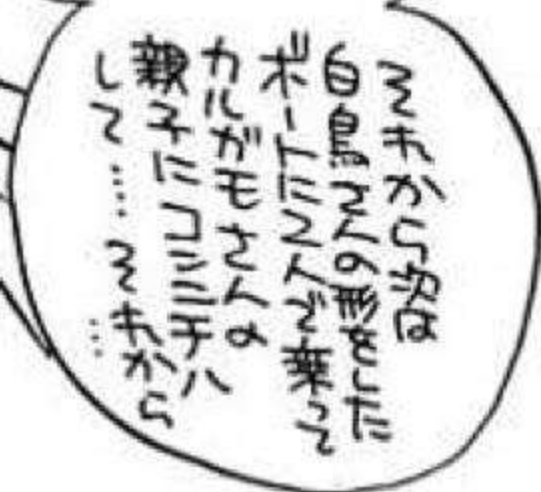 それから次は
白鳥さんの形をした
ボートに2人で乗って
カルガモさんの
親子にコンニチハ
して……それから
…